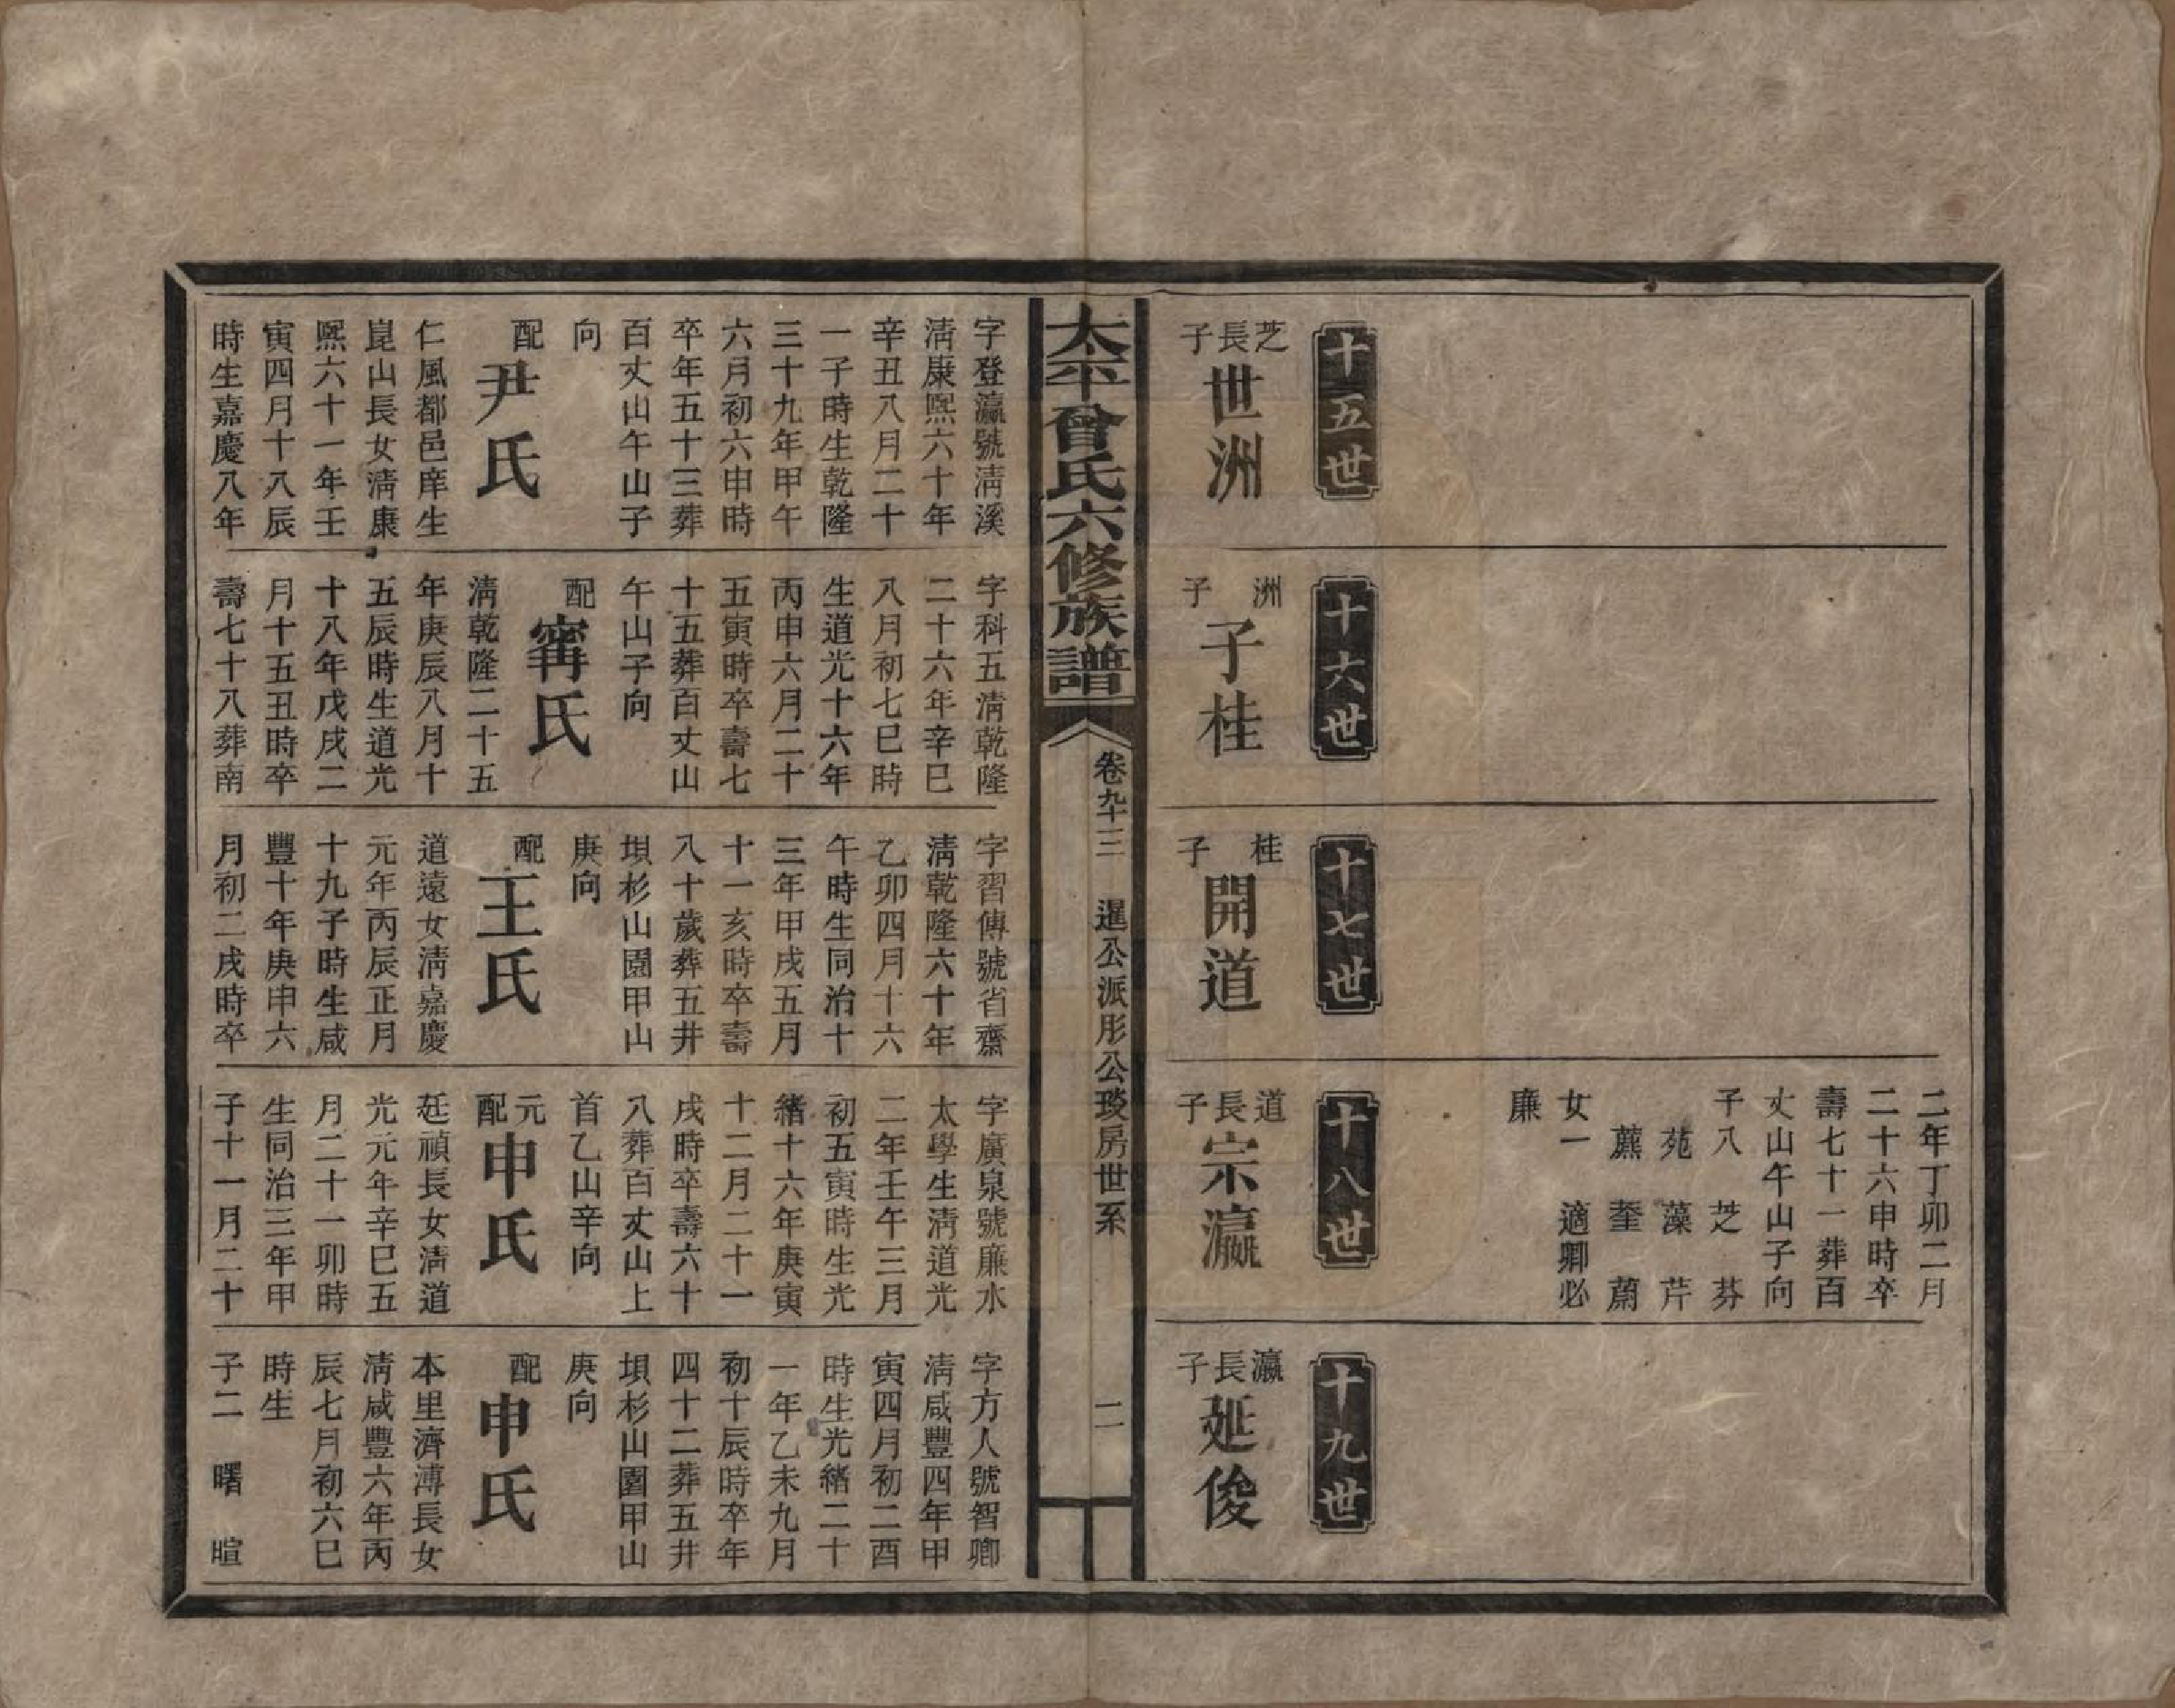 二年丁卯二月
二十六申時卒
壽七十一葬百
丈山午山子向
子八 芝 芬
苑 藻 芹
蘪 蓥 蘭
女一 適卿必
廉
十五世
芝長子
世洲
十六世
洲子
子桂
十七世
桂子
開道
十八世
道長子
宗瀛
十九世
瀛長子
延俊
太平曾氏六修族譜
卷九十三 暹公派彤公琰房世系 二
字登瀛號淸溪
淸康熙六十年
辛丑八月二十
一子時生乾隆
三十九年甲午
六月初六申時
卒年五十三葬
百丈山午山子
向
配 尹氏
仁風都邑庠生
崑山長女淸康
熙六十一年壬
寅四月十八辰
時生嘉慶八年
字科五淸乾隆
二十六年辛巳
八月初七巳時
生道光十六年
丙申六月二十
五寅時卒壽七
十五葬百丈山
午山子向
配 甯氏
淸乾隆二十五
年庚辰八月十
五辰時生道光
十八年戊戌二
月十五丑時卒
壽七十八葬南
字習傳號省齋
淸乾隆六十年
乙卯四月十六
午時生同治十
三年甲戌五月
十一亥時卒壽
八十歲葬五井
垻杉山園甲山
庚向
配 王氏
道遠女淸嘉慶
元年丙辰正月
十九子時生咸
豐十年庚申六
月初二戌時卒
字廣泉號廉水
太學生淸道光
二年壬午三月
初五寅時生光
緒十六年庚寅
十二月二十一
戌時卒壽六十
八葬百丈山上
首乙山辛向
元配 申氏
廷禎長女淸道
光元年辛巳五
月二十一卯時
生同治三年甲
子十一月二十
字方人號智卿
淸咸豐四年甲
寅四月初二酉
時生光緒二十
一年乙未九月
初十辰時卒年
四十二葬五井
垻杉山園甲山
庚向
配 申氏
本里濟溥長女
淸咸豐六年丙
辰七月初六巳
時生
子二 曙 暄